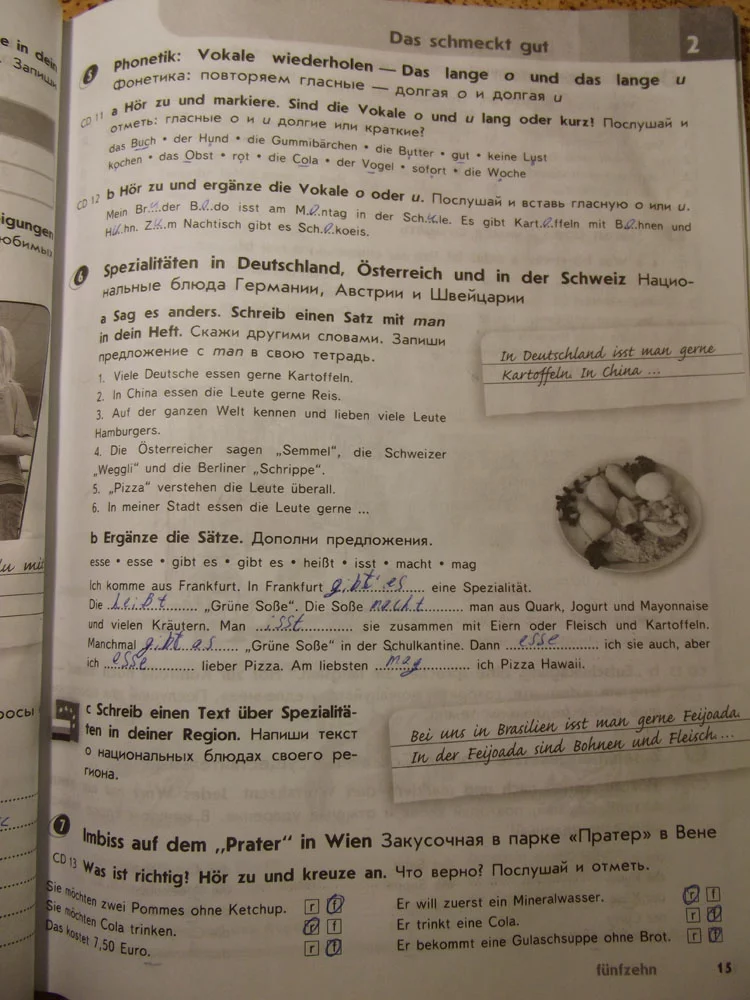 Das schmeckt gut 2
5 Phonetik: Vokale wiederholen — Das lange o und das lange u
Фонетика: повторяем гласные — долгая о и долгая u
CD 11 a Hör zu und markiere. Sind die Vokale o und u lang oder kurz? Послушай и
отметь: гласные о и u долгие или краткие?
das Buch • der Hund • die Gummibärchen • die Butter • gut • keine Lust
kochen • das Obst • rot • die Cola • der Vogel • sofort • die Woche
CD 12 b Hör zu und ergänze die Vokale o oder u. Послушай и вставь гласную о или u.
Mein Bruder B.o.do isst am M.o.ntag in der Sch.u.le. Es gibt Kart.o.ffeln mit B.o.hnen und
Hu.hn. Z.u.m Nachtisch gibt es Sch.o.koeis.
6 Spezialitäten in Deutschland, Österreich und in der Schweiz Нацио-
нальные блюда Германии, Австрии и Швейцарии
a Sag es anders. Schreib einen Satz mit man
in dein Heft. Скажи другими словами. Запиши
предложение с man в свою тетрадь.
1. Viele Deutsche essen gerne Kartoffeln.
2. In China essen die Leute gerne Reis.
3. Auf der ganzen Welt kennen und lieben viele Leute
Hamburgers.
4. Die Österreicher sagen „Semmel“, die Schweizer
„Weggli“ und die Berliner „Schrippe“.
5. „Pizza“ verstehen die Leute überall.
6. In meiner Stadt essen die Leute gerne ...
In Deutschland isst man gerne
Kartoffeln. In China ...
b Ergänze die Sätze. Дополни предложения.
esse • esse • gibt es • gibt es • heißt • isst • macht • mag
Ich komme aus Frankfurt. In Frankfurt gibt es eine Spezialität.
Die heißt „Grüne Soße“. Die Soße macht man aus Quark, Jogurt und Mayonnaise
und vielen Kräutern. Man isst sie zusammen mit Eiern oder Fleisch und Kartoffeln.
Manchmal gibt as „Grüne Soße“ in der Schulkantine. Dann esse ich sie auch, aber
ich esse lieber Pizza. Am liebsten mag ich Pizza Hawaii.
c Schreib einen Text über Spezialitä-
ten in deiner Region. Напиши текст
о национальных блюдах своего ре-
гиона.
Bei uns in Brasilien isst man gerne Feijoada.
In der Feijoada sind Bohnen und Fleisch. ...
7 Imbiss auf dem „Prater“ in Wien Закусочная в парке «Пратер» в Вене
CD 13 Was ist richtig? Hör zu und kreuze an. Что верно? Послушай и отметь.
Sie möchten zwei Pommes ohne Ketchup. r f
Sie möchten Cola trinken. r f
Das kostet 7,50 Euro. r f
Er will zuerst ein Mineralwasser. r f
Er trinkt eine Cola. r f
Er bekommt eine Gulaschsuppe ohne Brot. r f
fünfzehn 15